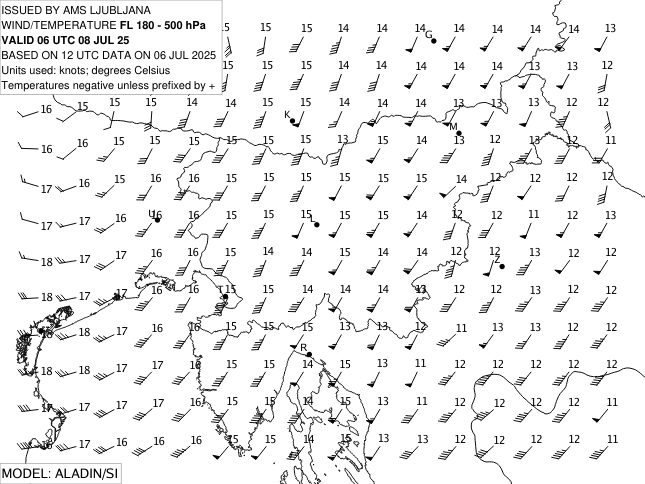 ISSUED BY AMS LJUBLJANA
WIND/TEMPERATURE FL 180 - 500 hPa
VALID 06 UTC 08 JUL 25
BASED ON 12 UTC DATA ON 06 JUL 2025
Units used: knots; degrees Celsius
Temperatures negative unless prefixed by +
15 15 15 14 14 14 14 14 14 14 13
G
15 15 15 14 14 14 14 14 13 13 12
16 15 15 15 14 14 15 15 14 14 14 13 13 13 12 12
K
M
16 16 15 15 14 15 15 15 13 14 14 13 12 12 12 11
17 16 15 16 16 15 15 15 15 15 14 14 12 12 12 12
17 17 16 16 16 15 15 15 15 15 14 12 12 11 12 13
U L
18 17 17 16 16 15 14 15 14 14 14 12 12 13 12 12
Z
18 18 17 16 16 15 15 14 14 14 13 12 12 13 12 12
T
18 18 17 16 16 15 15 15 13 13 12 11 13 13 12 12
R
18 18 17 17 16 15 15 14 15 13 11 12 12 12 12 12
17 17 17 17 16 15 15 14 15 13 11 12 12 12 12 11
16 17 16 16 16 15 15 14 15 13 13 12 12 12 12 11
MODEL: ALADIN/SI